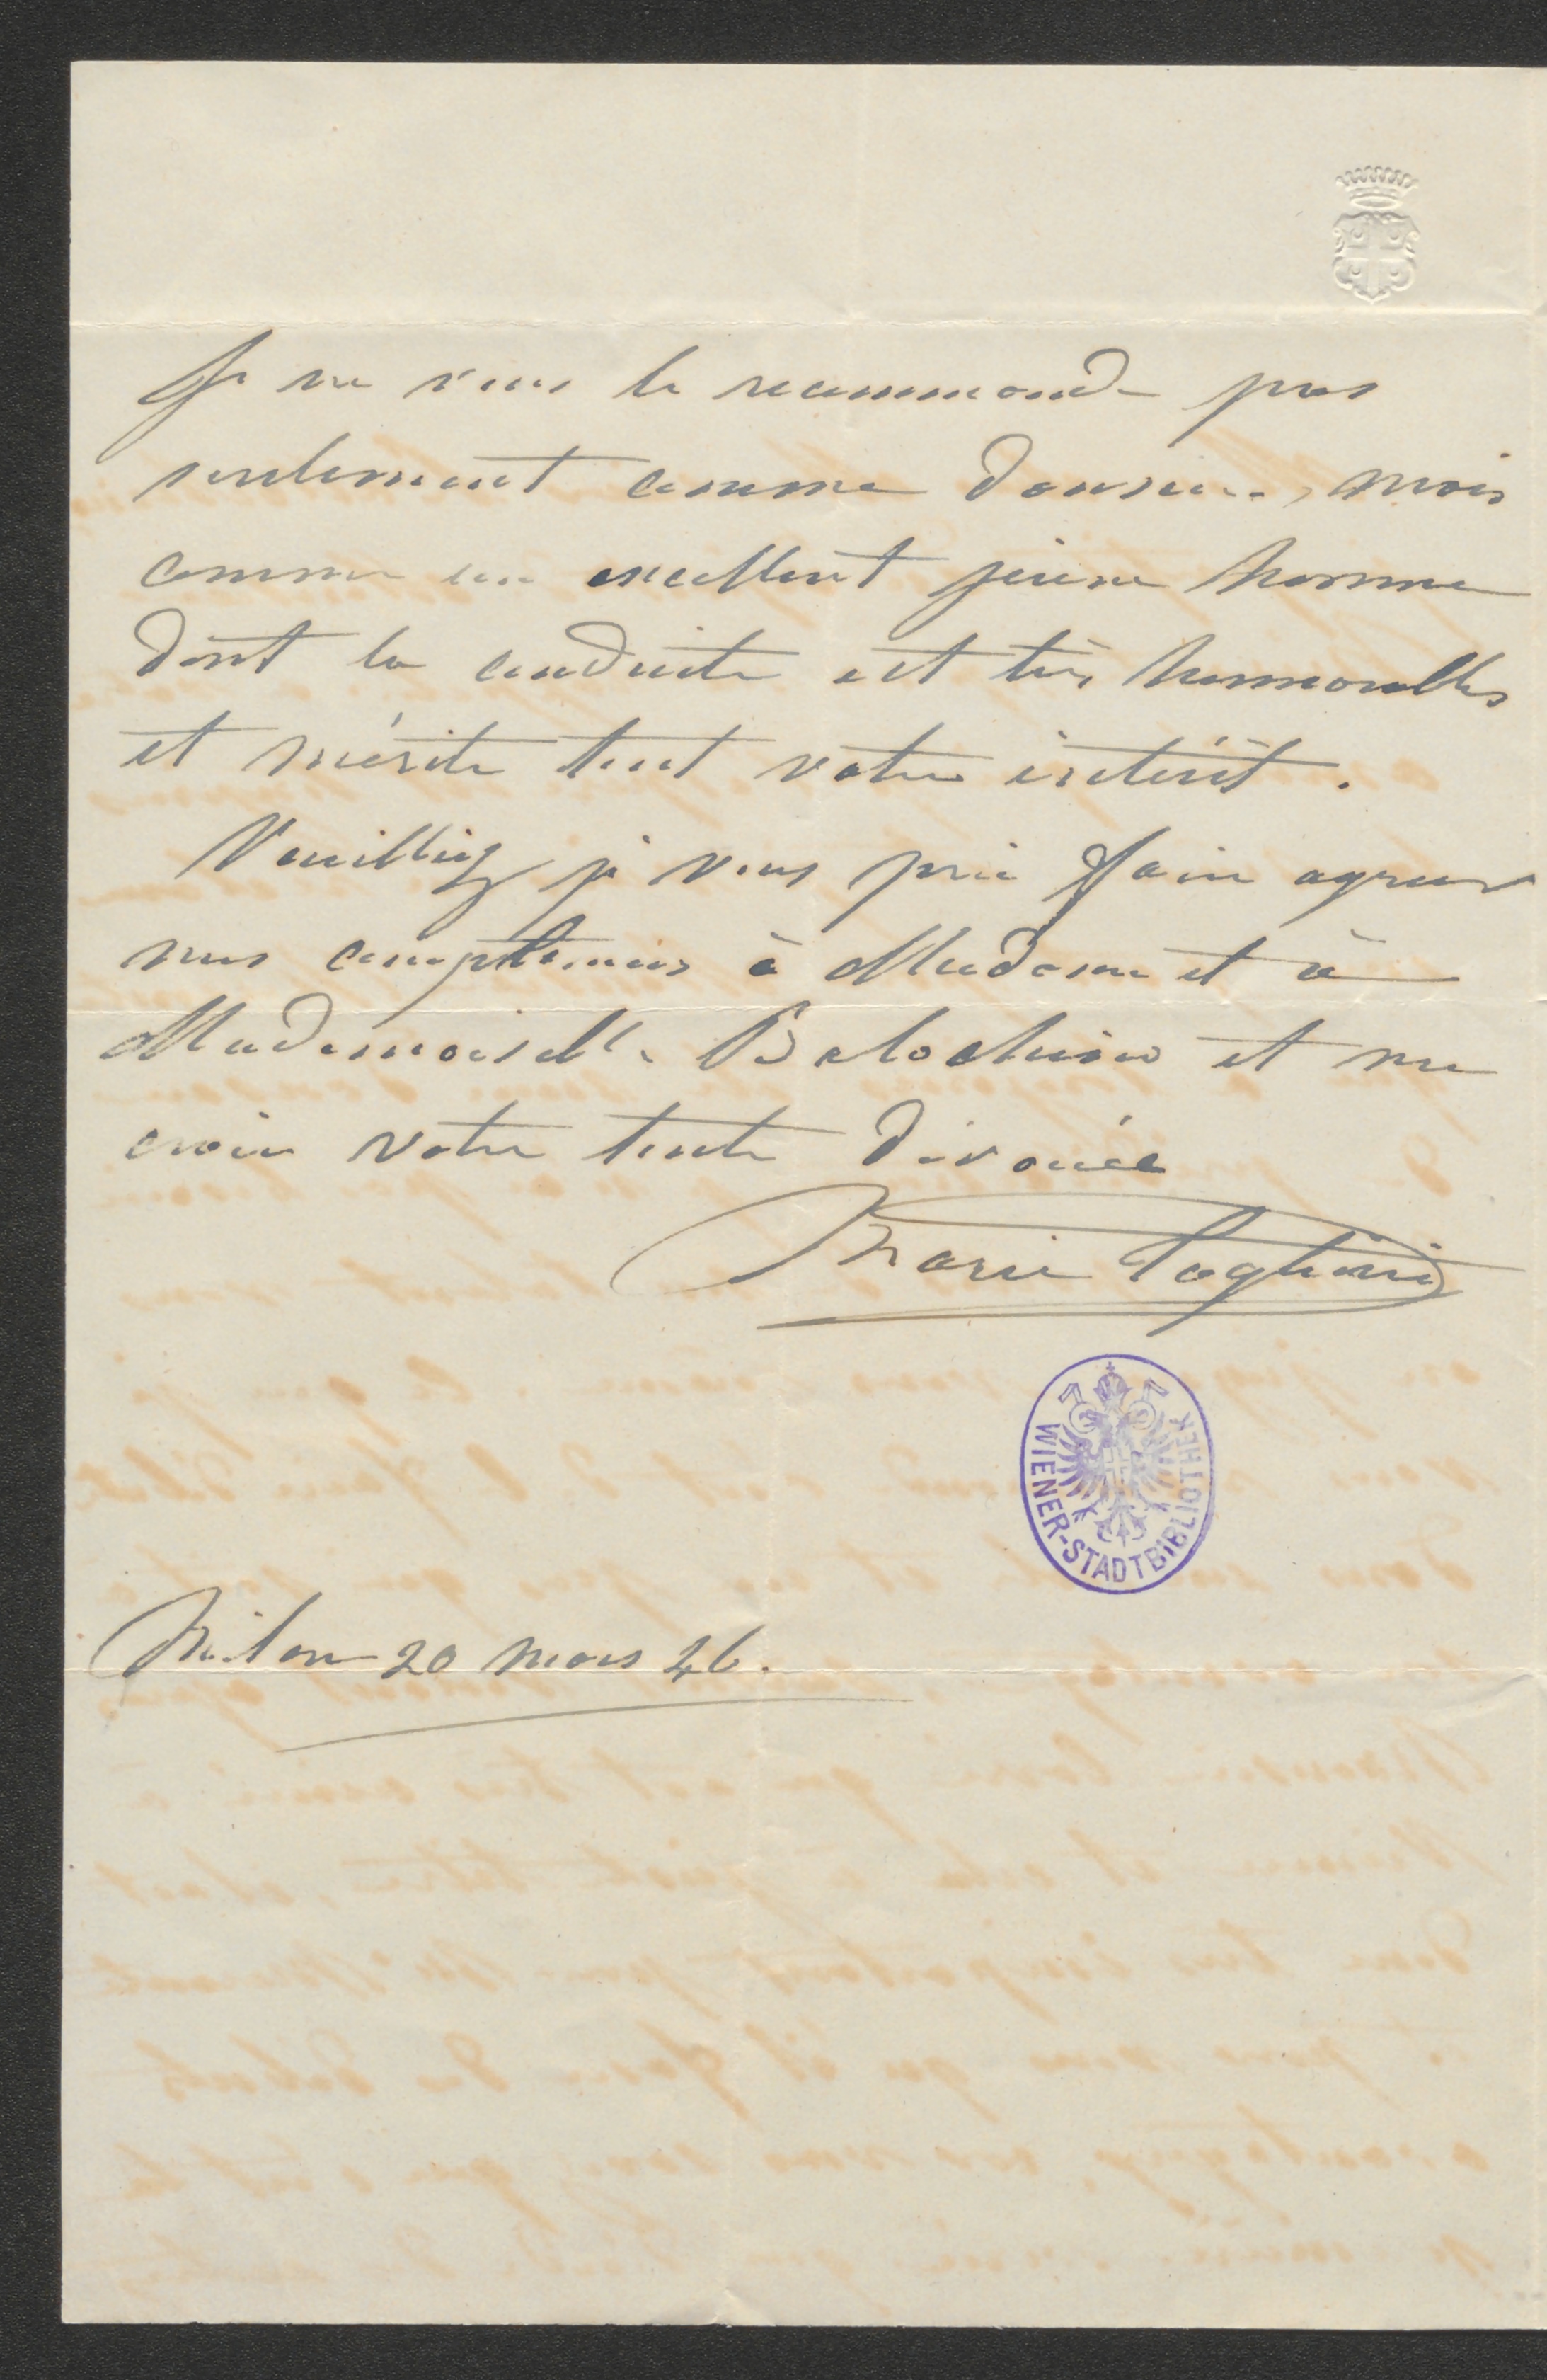 Je ne vous le recommande pas
seulement comme danseur, mais
comme un excellent jeune homme
dont la conduite est très honnorable
et mérite tout votre intérêt.
Veuilliez je vous prie faire agreer
mes complimens à Madame et à
Mademoiselle Balochino et me
croire votre toute dévouée
Marie Taglioni
WIENER-STADTBIBLIOTHEK
Milan 20 mars 46.